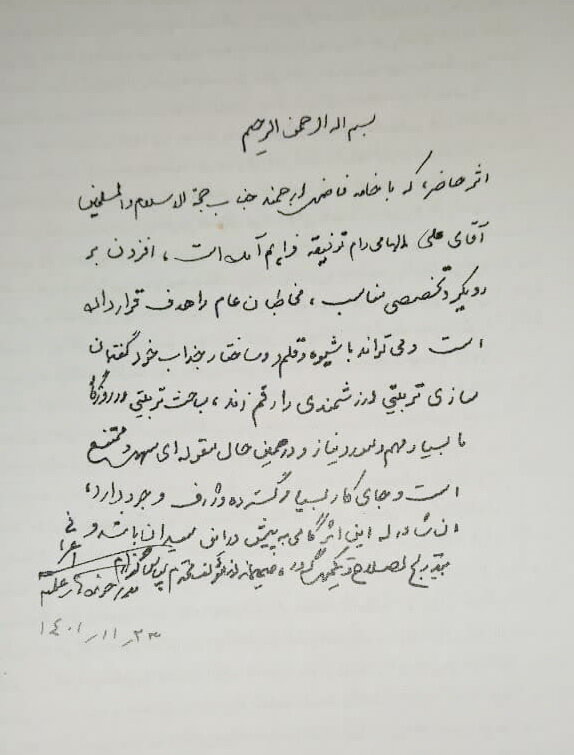 بسم اله الرحمن الرحیم
اثر حاضر، که با خامه فاضل ارجمند جناب حجة الاسلام والمسلمین
آقای علی الهامی دام توفیقه فراهم آمده است، افزون بر
رویکرد تخصصی مناسب، مخاطبان عام را هدف قرار داده
است و می تواند با شیوه و قلم و ساختار جذاب خود گفتمان
سازی تربیتی ارزشمندی را رقم زند، مباحث تربیتی در روزگار
ما بسیار مهم و مورد نیاز و در همین حال مقوله ای سهل و ممتنع
است و جای کار بسیار گسترده و ژرف وجود دارد،
ان شاءاله این اثر گامی به پیش در این میدان باشد و
بتدریج اصلاح و تکمیل گردد، صمیمانه از مؤلف محترم سپاسگزارم
مدیر حوزه های علمیه
اعرافی
۱۴۰۱/۱۱/۲۳